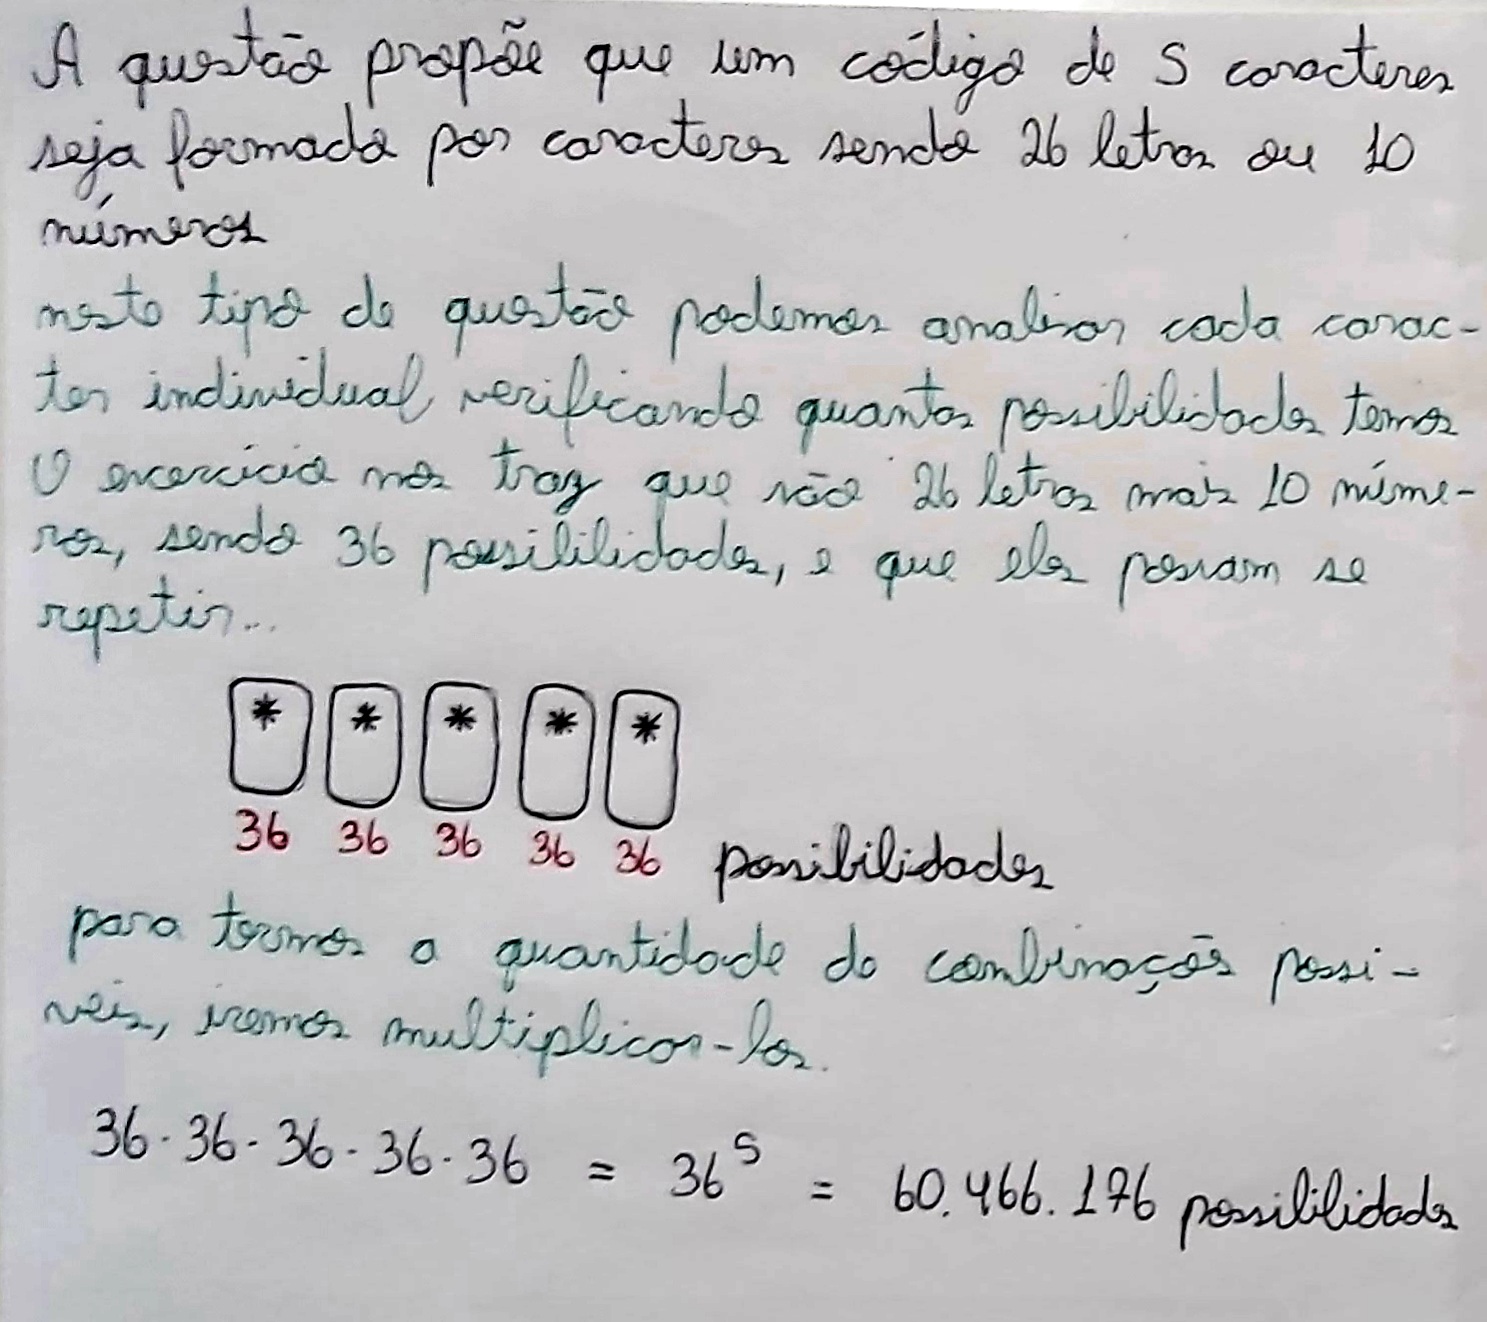 A questão propõe que um código de 5 caracteres
seja formado por caracteres sendo 26 letras ou 10
números
neste tipo de questão podemos analisar cada carac-
ter individual, verificando quantas possibilidades temos
O exercício nos traz que são 26 letras mais 10 núme-
ros, sendo 36 possibilidades, e que eles possam se
repetir...
* * * * *
36 36 36 36 36 possibilidades
para termos a quantidade de combinações possi-
veis, iremos multiplicar-los.
36 · 36 · 36 · 36 · 36 = 36⁵ = 60.466.176 possibilidades